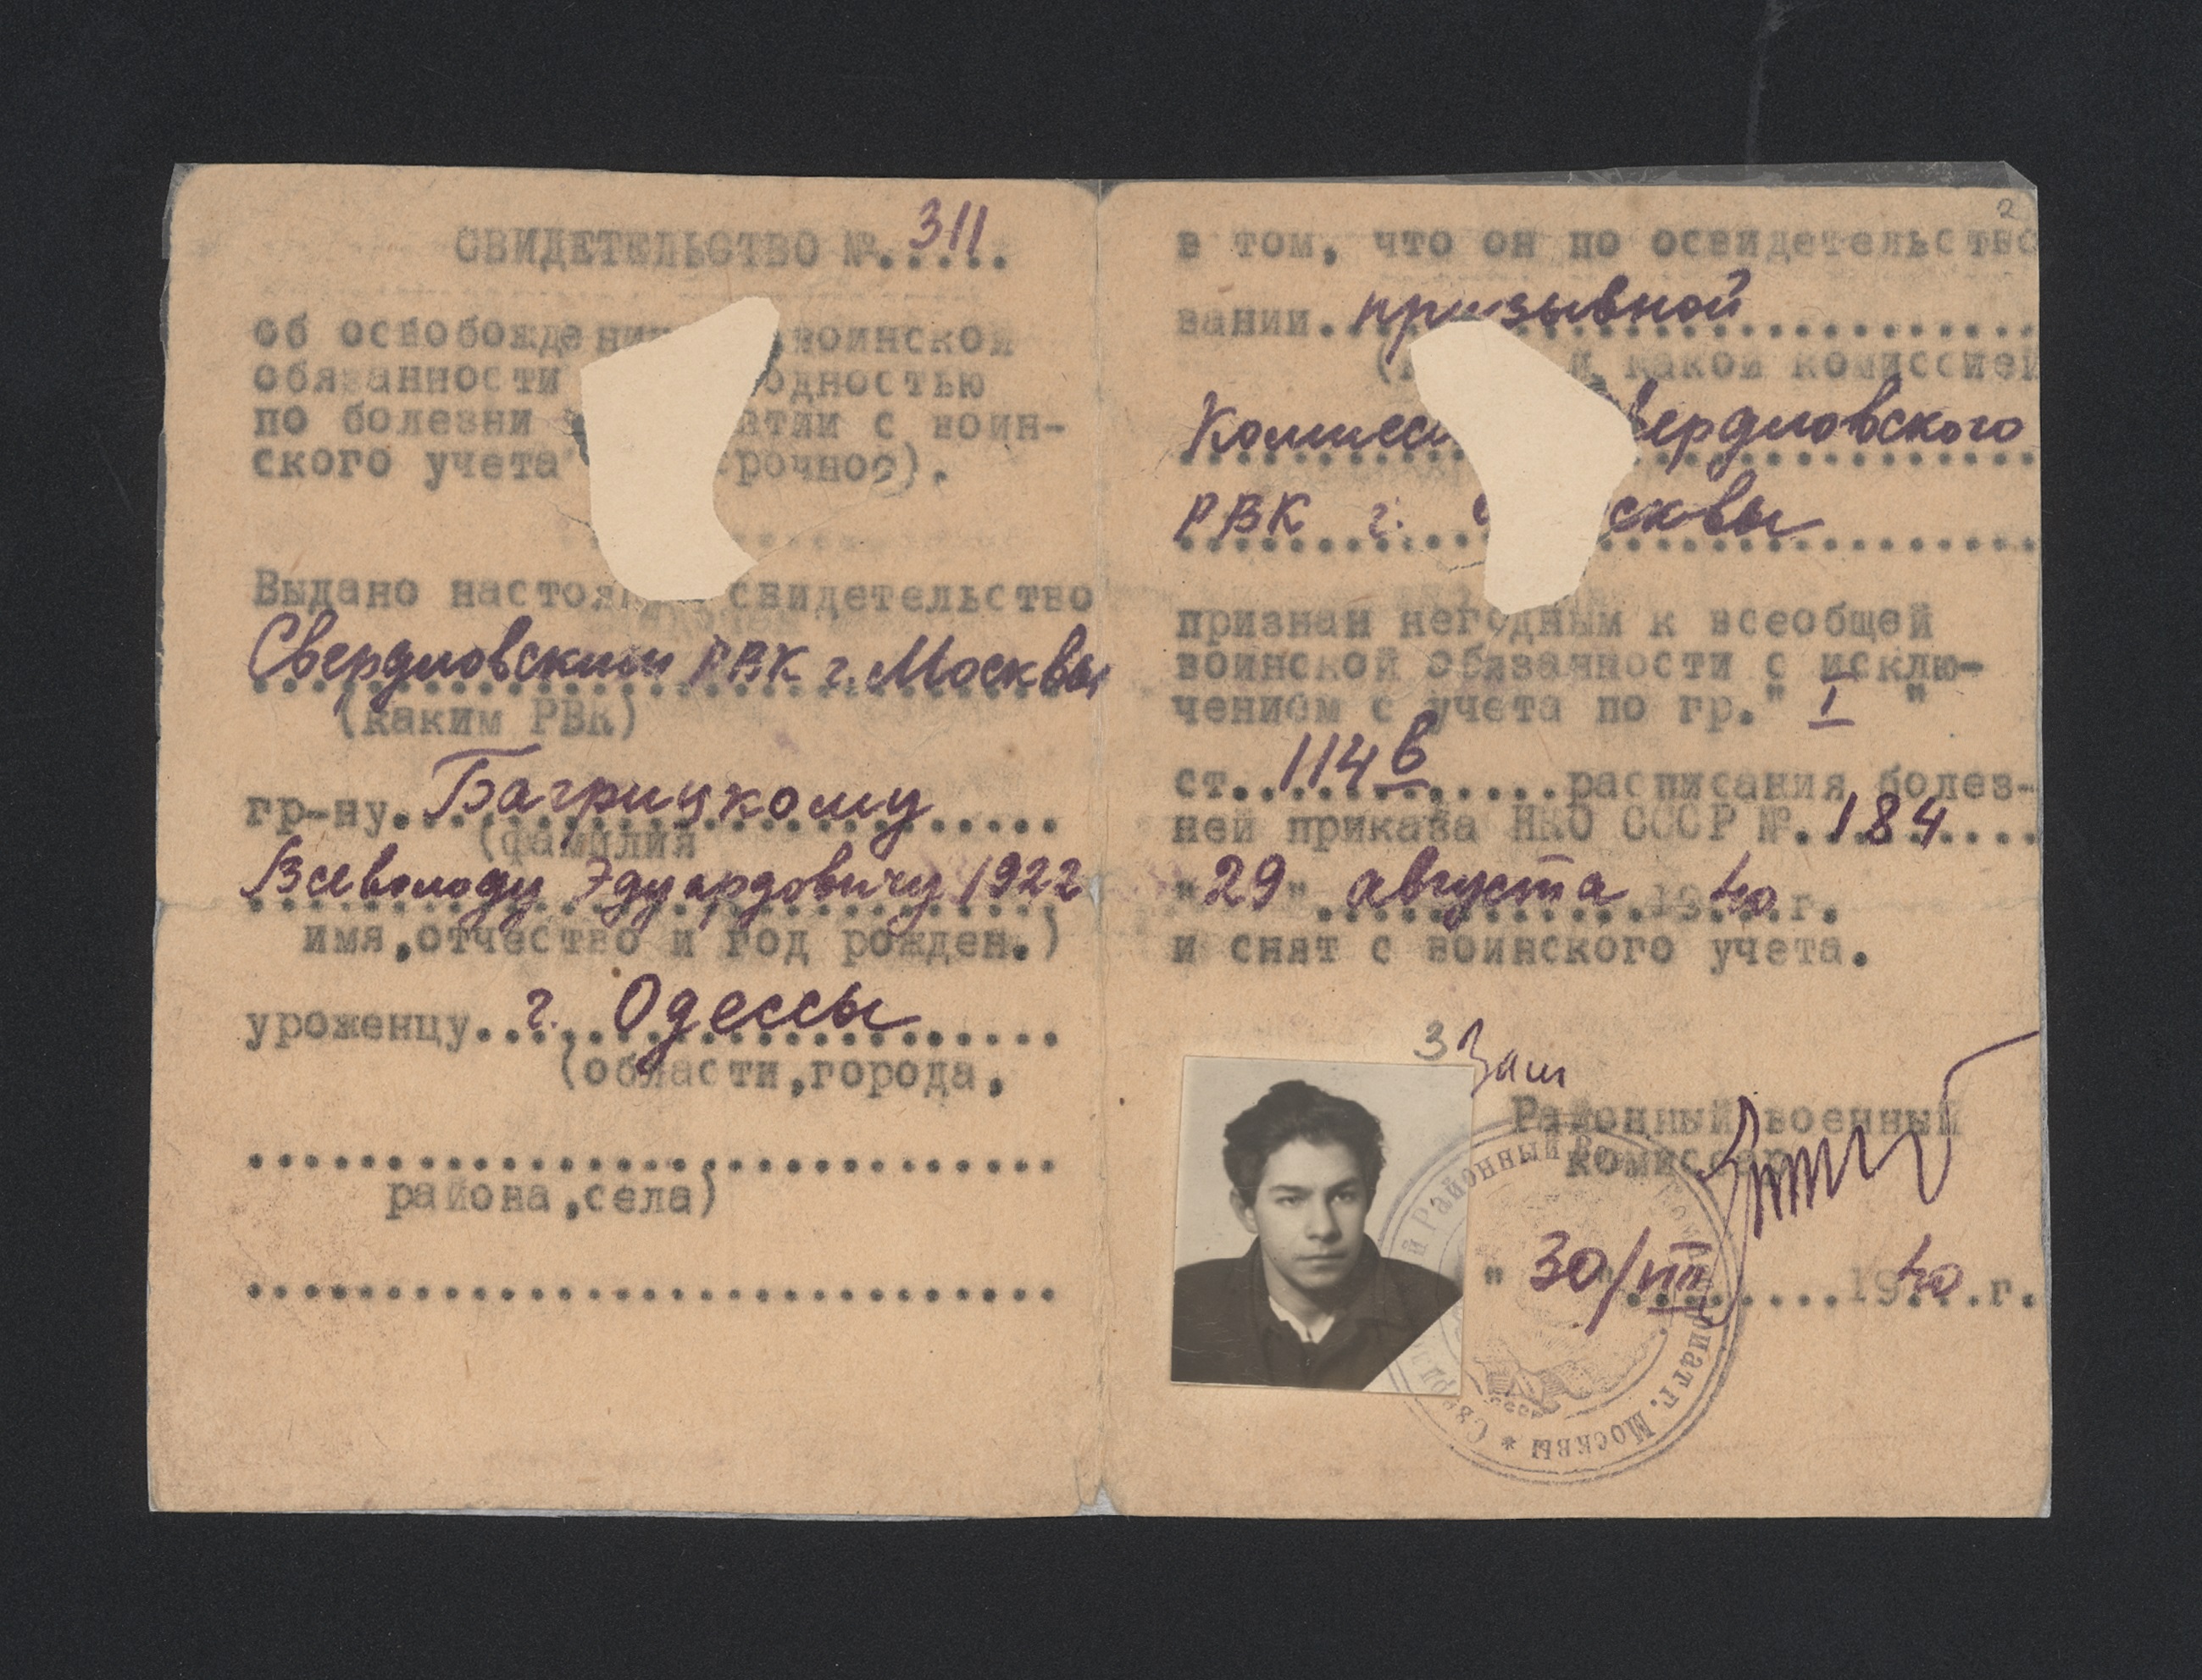 СВИДЕТЕЛЬСТВО №.311....
об освобождени воинской
обязанности одностью
по болезни атии с воин-
ского учета рочное).
Выдано настоя свидетельство
Свердловским РВК г. Москвы
(каким РВК)
гр-ну. Багрицкому
(фамилия
Всеволоду Эдуардовичу 1922
имя,отчество и год рожден.)
уроженцу... г. Одессы
(области,города,
района,села)
2
в том, что он по освидетельство
вании. призывной
и какой комиссией
Комисси вердловского
РВК г. сквы
признан негодным к всеобщей
воинской обязанности с исклю-
чением с учета по гр." I "
ст. 114 в расписания болез-
ней приказа НКО СССР №. 184
"29" августа 1940 г.
и снят с воинского учета.
3 Зам
Районный военный
комиссар
"30/VIII 1940 г.
Районный В г. Москвы * Св
СССР